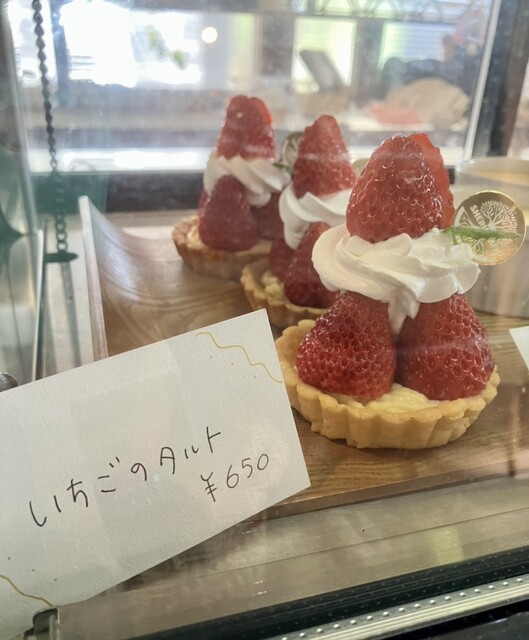 いちごのタルト
¥650